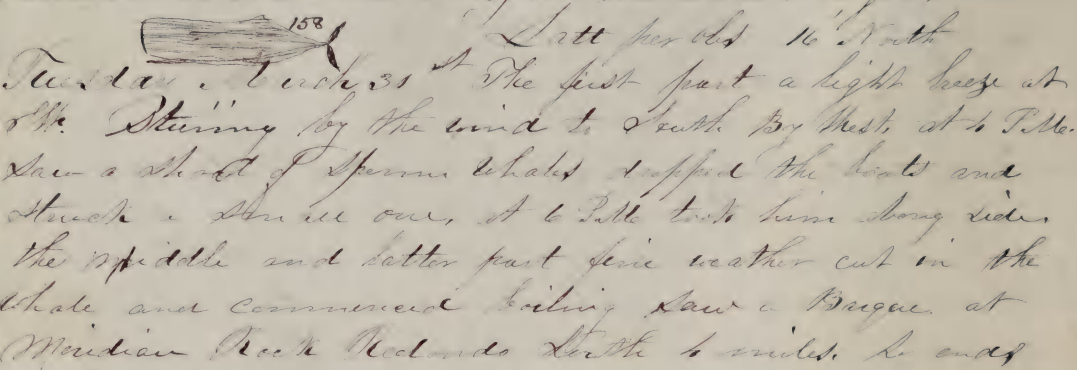 158
Latt per obs 16 North
Tuesday March 31st The first part a light breeze at
SW. Stearing by the wind to South By West, at 1 P.M.
saw a shoal of Sperm Whales dropped the boats and
struck a small one, at 6 P.M. took him along side.
the middle and latter part fine weather cut in the
whale and commenced boiling saw a Brigue. at
Meridian Rock Redondo South 6 miles. So ends